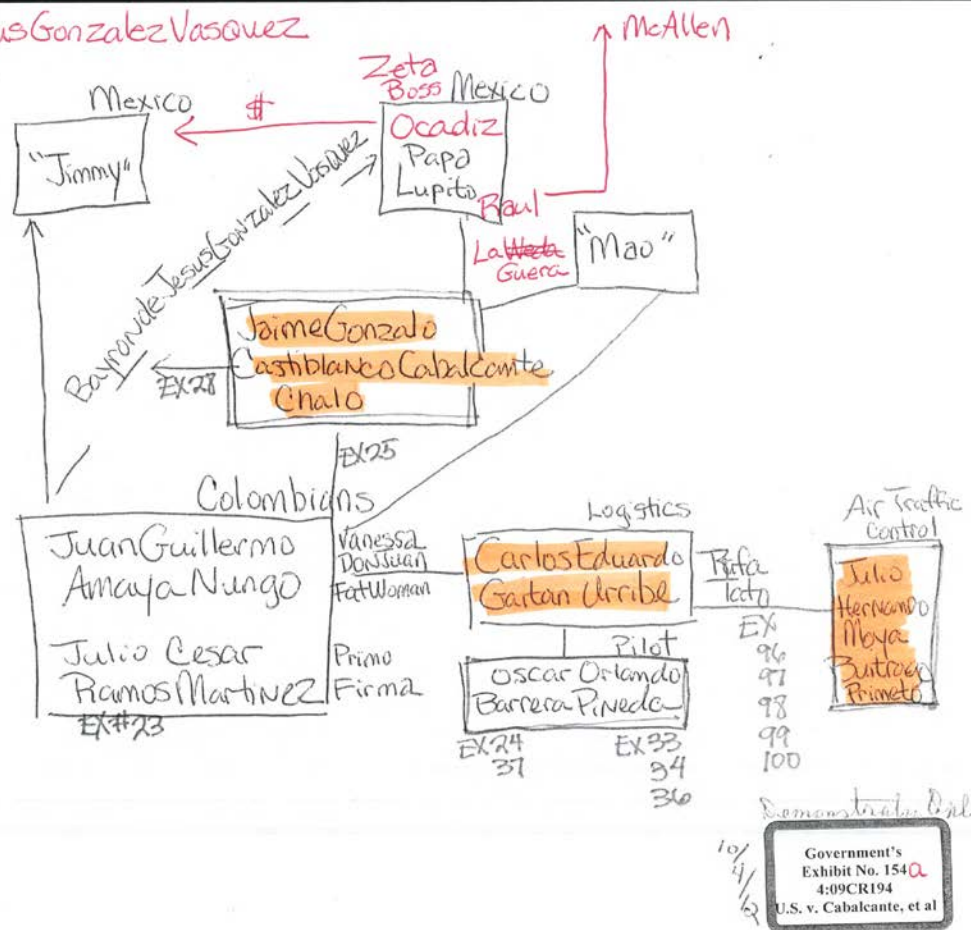 us Gonzalez Vasquez
McAllen
Zeta
Boss
Mexico
$
Mexico
"Jimmy"
Ocadiz
Papo
Lupito
Raul
La Weda
Guera
"Mao"
Bayron de Jesus Gonzalez Vasquez
Jaime Gonzalo
Castiblanco Cabalcante
Chalo
EX28
EX25
Colombians
Juan Guillermo
Amaya Nungo
Julio Cesar
Ramos Martinez
EX#23
Vanessa
Don Juan
Fat Woman
Primo
Firma
Logistics
Carlos Eduardo
Gaitan Urribe
Pilot
Oscar Orlando
Barrera Pineda
EX24
37
EX33
34
36
Tato
EX
96
97
98
99
100
Air Traffic
Control
Julio
Hernando
Moya
Buitrago
Primeto
10/
4/
Government's
Exhibit No. 154a
4:09CR194
U.S. v. Cabalcante, et al